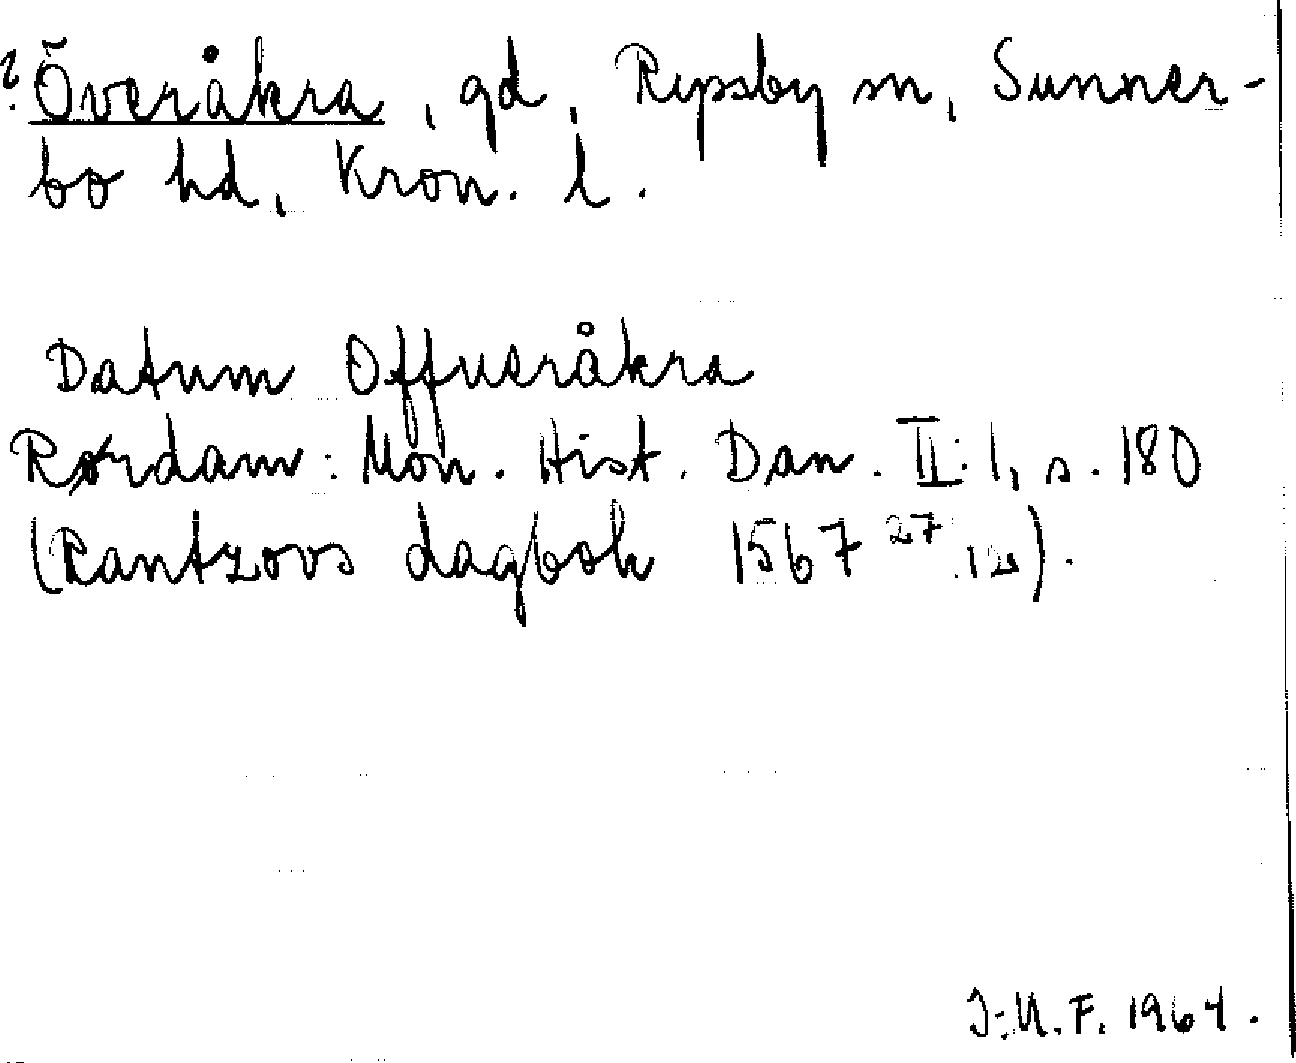 ? Överåkra, gd, Ryssby sn, Sunner-
bo hd, Kron. l.
Datum Offueråkra
Rørdam: Mon. Hist. Dan. II:1, s. 180
(Rantzovs dagbok 1567 27/12).
J:M.F. 1964.